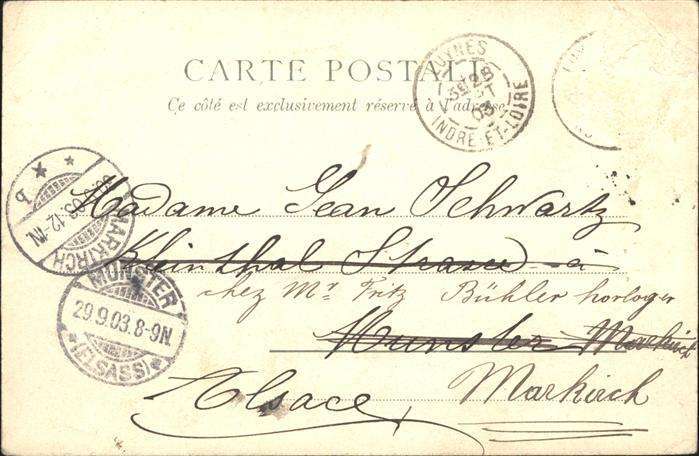 CARTE POSTALE
Ce côté est exclusivement réservé à l'adresse
LUYNES
28
SEPT
03
INDRE-ET-LOIRE
Madame Jean Schwartz
Kleinthal Strasse à
chez Mr Fritz Bühler horloger
Munster Markirch
Alsace Markirch
MARKIRCH
12-1N
b
MÜNSTER
29.9.03.8-9N
(ELSASS)